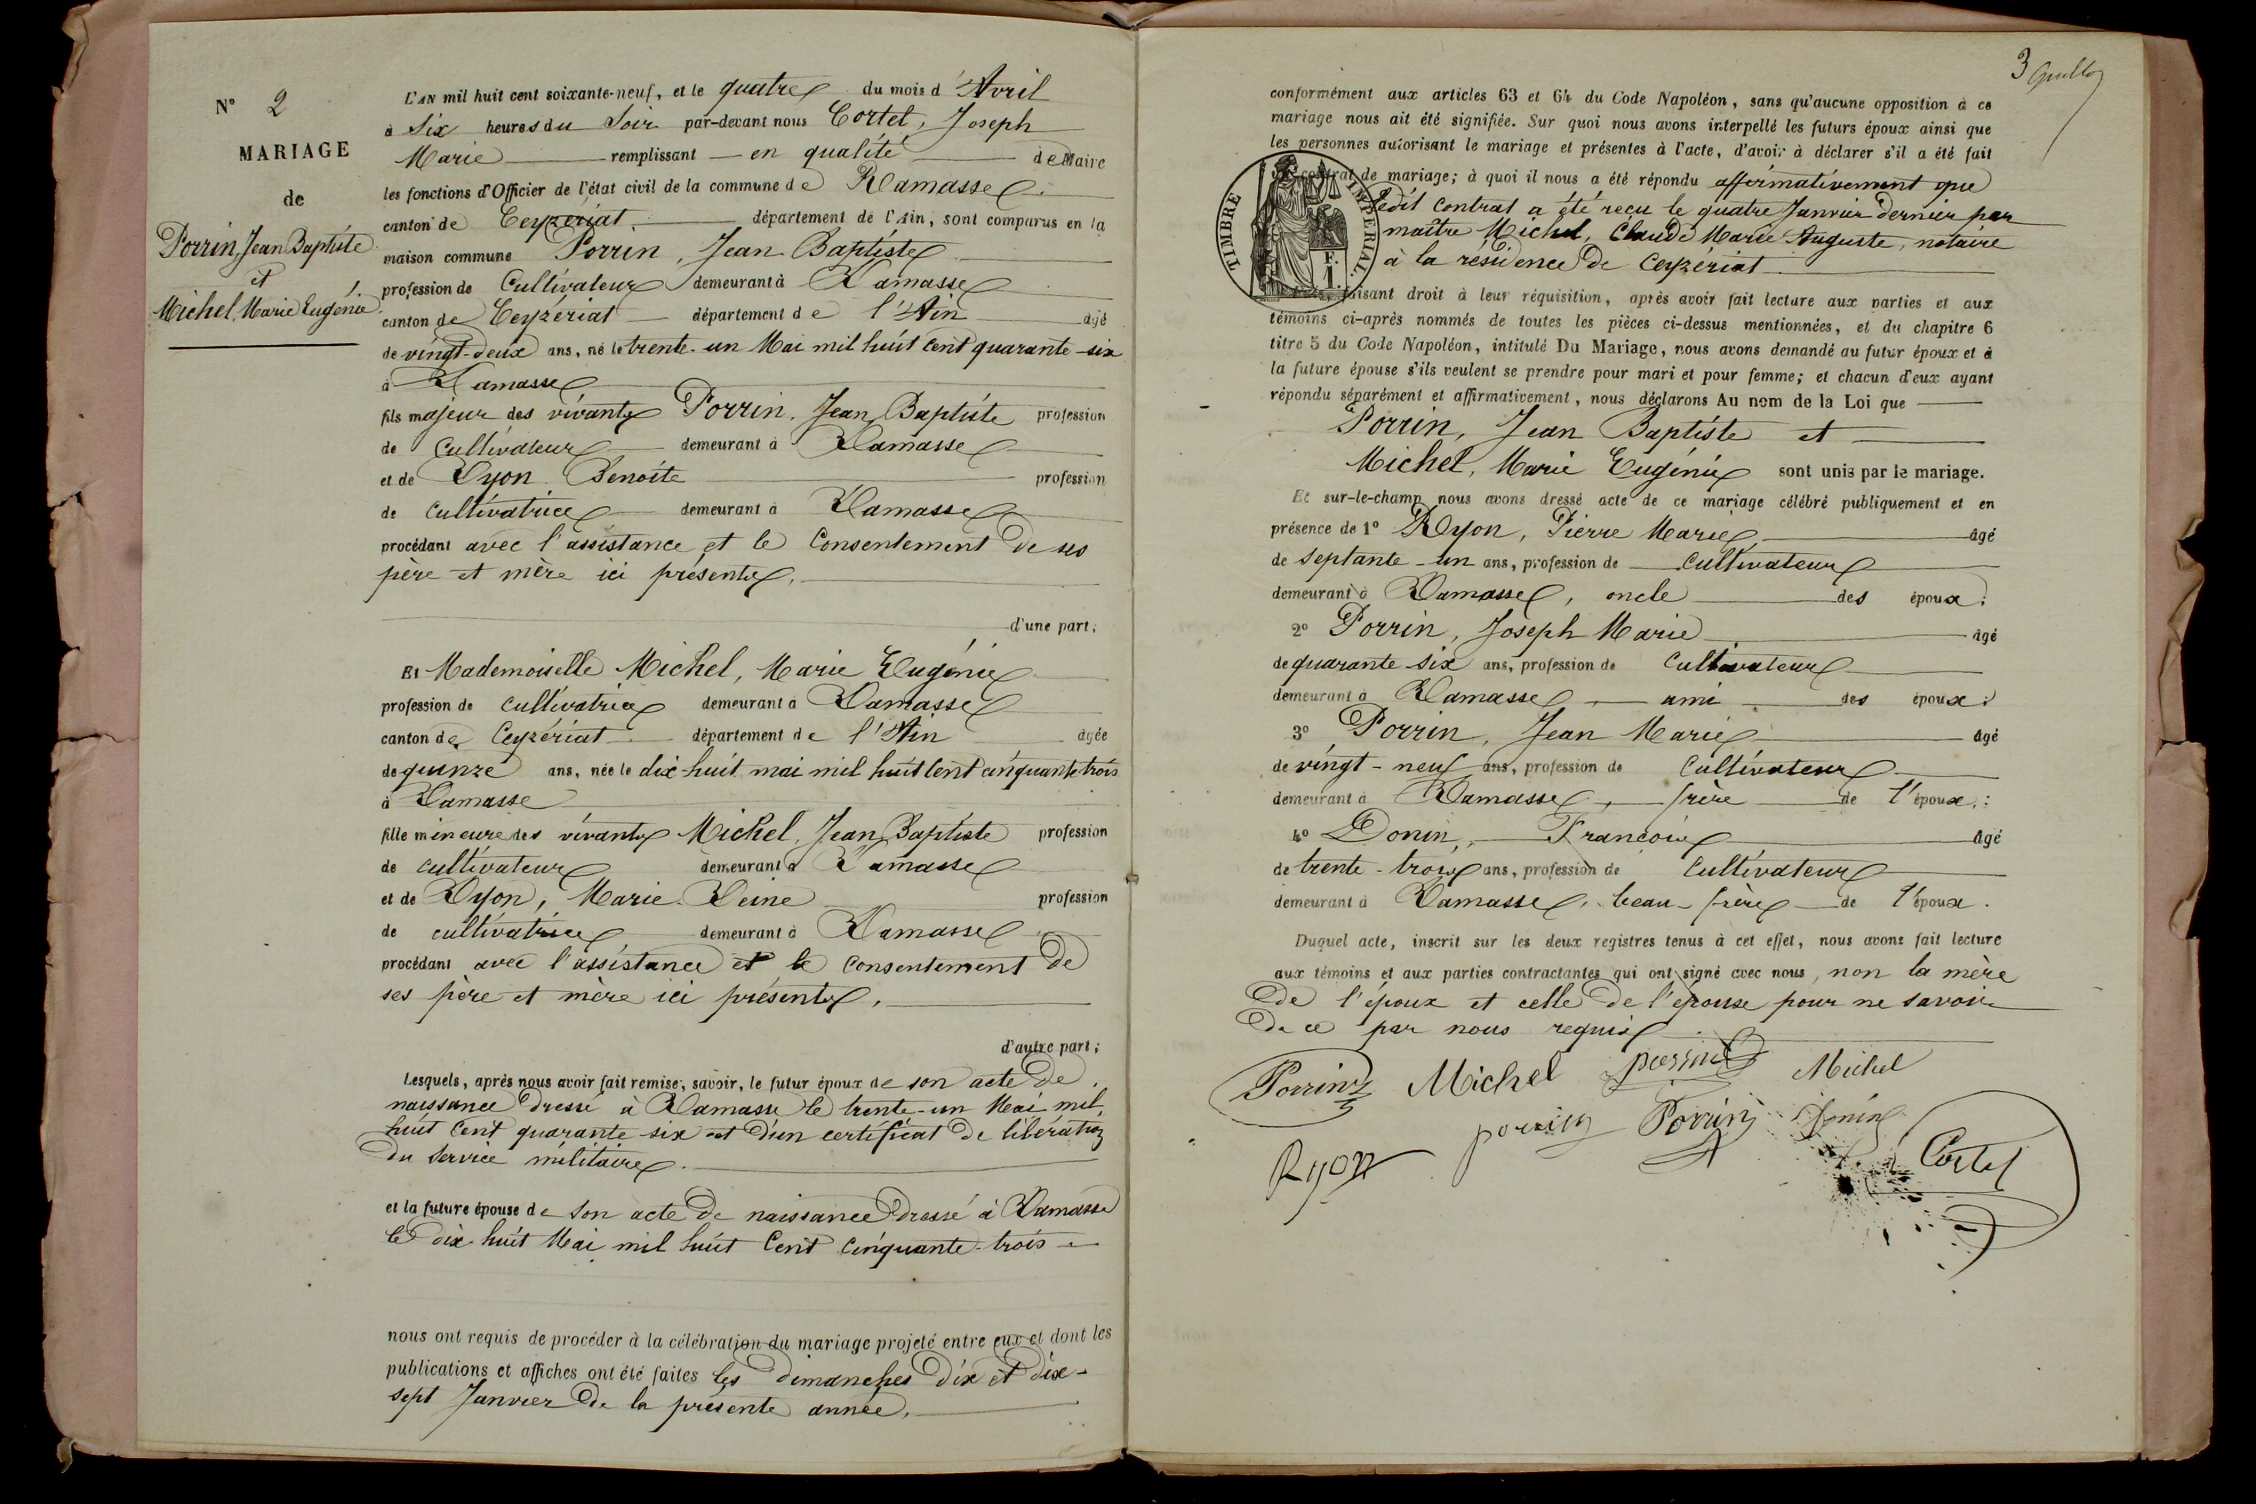 N° 2
MARIAGE
de
Porrin, Jean Baptiste
et
Michel, Marie Eugénie
L'AN mil huit cent soixante-neuf, et le quatre du mois d'Avril
à Six heures du Soir par-devant nous Cortet, Joseph
Marie remplissant en qualité de Maire
les fonctions d'Officier de l'état civil de la commune de Ramasse
canton de Ceyzériat, département de l'Ain, sont comparus en la
maison commune Porrin, Jean Baptiste
profession de Cultivateur demeurant à Ramasse
canton de Ceyzériat département de l'Ain âgé
de vingt-deux ans, né le trente-un Mai mil huit cent quarante-six
à Ramasse
fils majeur des vivants Porrin, Jean Baptiste profession
de Cultivateur demeurant à Ramasse
et de Ryon Benoite profession
de Cultivatrice demeurant à Ramasse
procédant avec l'assistance et le Consentement de ses
père et mère ici présents,
d'une part;
Et Mademoiselle Michel, Marie Eugénie
profession de cultivatrice demeurant à Ramasse
canton de Ceyzériat département de l'Ain âgée
de quinze ans, née le dix huit mai mil huit cent cinquante trois
à Ramasse
fille mineure des vivants Michel, Jean Baptiste profession
de cultivateur demeurant à Ramasse
et de Ryon, Marie Reine profession
de cultivatrice demeurant à Ramasse
procédant avec l'assistance et le consentement de
ses père et mère ici présents,
d'autre part;
Lesquels, après nous avoir fait remise, savoir, le futur époux de son acte de
naissance dressé à Ramasse le trente-un Mai mil
huit cent quarante six et d'un certificat de libération
du Service militaire.
et la future épouse de son acte de naissance dressé à Ramasse
le dix huit Mai mil huit Cent Cinquante-trois
nous ont requis de procéder à la célébration du mariage projeté entre eux et dont les
publications et affiches ont été faites les dimanches dix et dix-
sept Janvier de la présente année.
3
conformément aux articles 63 et 64 du Code Napoléon, sans qu'aucune opposition à ce
mariage nous ait été signifiée. Sur quoi nous avons interpellé les futurs époux ainsi que
les personnes autorisant le mariage et présentes à l'acte, d'avoir à déclarer s'il a été fait
contrat de mariage; à quoi il nous a été répondu affirmativement que
ledit contrat a été reçu le quatre Janvier dernier par
maître Michel, Claude Marie Auguste, notaire
à la résidence de Ceyzériat
TIMBRE IMPERIAL
1 F.
faisant droit à leur réquisition, après avoir fait lecture aux parties et aux
témoins ci-après nommés de toutes les pièces ci-dessus mentionnées, et du chapitre 6
titre 5 du Code Napoléon, intitulé Du Mariage, nous avons demandé au futur époux et à
la future épouse s'ils veulent se prendre pour mari et pour femme; et chacun d'eux ayant
répondu séparément et affirmativement, nous déclarons Au nom de la Loi que
Porrin, Jean Baptiste et
Michel, Marie Eugénie sont unis par le mariage.
Et sur-le-champ nous avons dressé acte de ce mariage célébré publiquement et en
présence de 1° Ryon, Pierre Marie âgé
de septante-un ans, profession de cultivateur
demeurant à Ramasse, oncle des époux;
2° Porrin, Joseph Marie âgé
de quarante six ans, profession de Cultivateur
demeurant à Ramasse ami des époux;
3° Porrin, Jean Marie âgé
de vingt-neuf ans, profession de Cultivateur
demeurant à Ramasse, frère de l'époux;
4° Donin, François âgé
de trente-trois ans, profession de Cultivateur
demeurant à Ramasse, beau-frère de l'époux.
Duquel acte, inscrit sur les deux registres tenus à cet effet, nous avons fait lecture
aux témoins et aux parties contractantes qui ont signé avec nous, non la mère
de l'époux et celle de l'épouse pour ne savoir
de ce par nous requis.
Porrin Michel porrin Michel
porrin Porrin Donin
Ryon Cortet